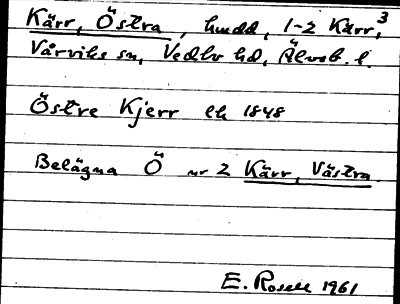 Kärr, Östra, hmdd, 1-2 Kärr,³
Vårviks sn, Vedbo hd, Älvsb. l.
Östre Kjerr ek 1848
Belägna Ö nr 2 Kärr, Västra.
E. Rosell 1961